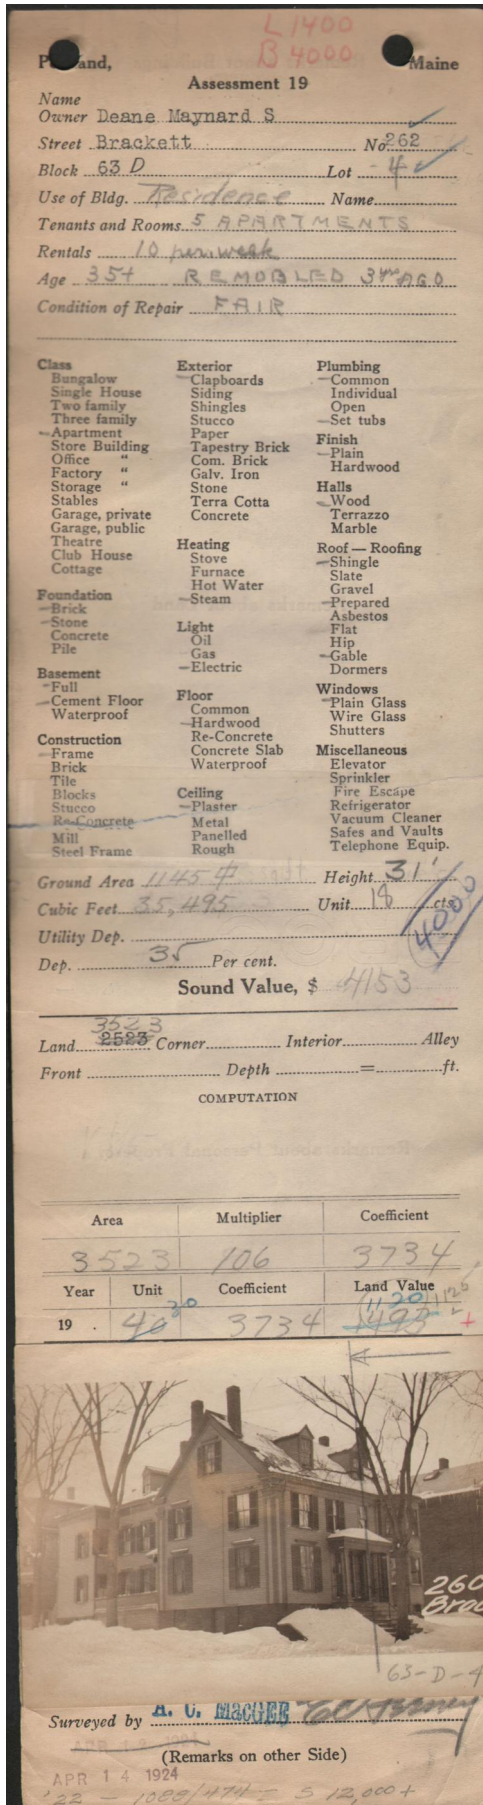 L 1400
B 4000
P and, Maine
Assessment 19
Name
Owner Deane Maynard S
Street Brackett No 262
Block 63 D Lot 4
Use of Bldg. Residence Name
Tenants and Rooms 5 APARTMENTS
Rentals 10 per week
Age 35+ REMOBLED 3 yrs AGO
Condition of Repair FAIR
Class
Bungalow
Single House
Two family
Three family
Apartment
Store Building
Office "
Factory "
Storage "
Stables
Garage, private
Garage, public
Theatre
Club House
Cottage
Foundation
Brick
Stone
Concrete
Pile
Basement
Full
Cement Floor
Waterproof
Construction
Frame
Brick
Tile
Blocks
Stucco
Re-Concrete
Mill
Steel Frame
Exterior
Clapboards
Siding
Shingles
Stucco
Paper
Tapestry Brick
Com. Brick
Galv. Iron
Stone
Terra Cotta
Concrete
Heating
Stove
Furnace
Hot Water
Steam
Light
Oil
Gas
Electric
Floor
Common
Hardwood
Re-Concrete
Concrete Slab
Waterproof
Ceiling
Plaster
Metal
Panelled
Rough
Plumbing
Common
Individual
Open
Set tubs
Finish
Plain
Hardwood
Halls
Wood
Terrazzo
Marble
Roof — Roofing
Shingle
Slate
Gravel
Prepared
Asbestos
Flat
Hip
Gable
Dormers
Windows
Plain Glass
Wire Glass
Shutters
Miscellaneous
Elevator
Sprinkler
Fire Escape
Refrigerator
Vacuum Cleaner
Safes and Vaults
Telephone Equip.
Ground Area 1145 Height 31'
Cubic Feet 35,495 Unit 18 cts.
4000
Utility Dep.
Dep. 35 Per cent.
Sound Value, $ 4153
3523
Land 2523 Corner Interior Alley
Front Depth = ft.
COMPUTATION
Area Multiplier Coefficient
3523 106 3734
Year Unit Coefficient Land Value
19 . 40 30 3734 1493 1120 1125
260
Brac
63-D-4
Surveyed by A. C. MacGEE
(Remarks on other Side)
APR 14 1924
'22 - 1088/474 = $ 12,000+